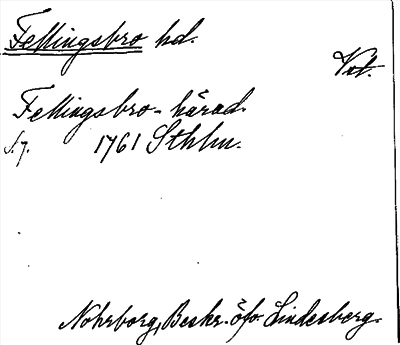 Fellingsbro hd.
Vnt.
Fellingsbro-härad.
S.7. 1761 Sthlm.
Nohrborg, Beskr. öfv. Lindesberg.